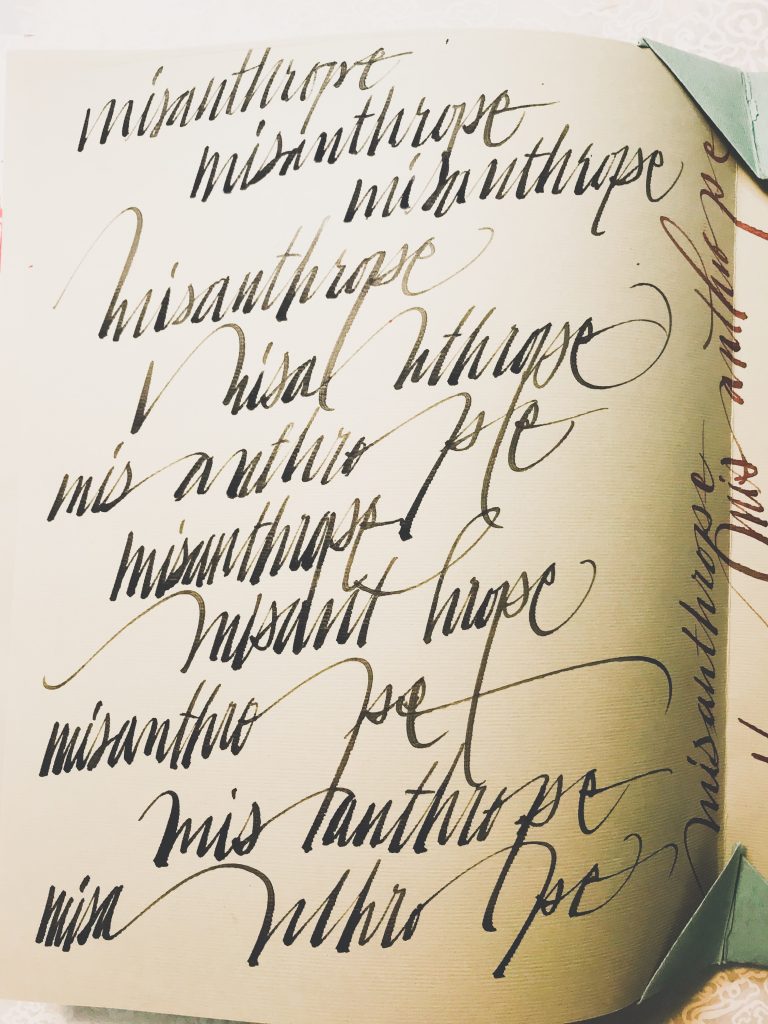 misanthrope
misanthrope
misanthrope
misanthrope
misanthrope
mis anthro pe
misanthrope
misant hrope
misanthro pe
mis anthrope
misa nthro pe
misanthrope
mis anthro pe